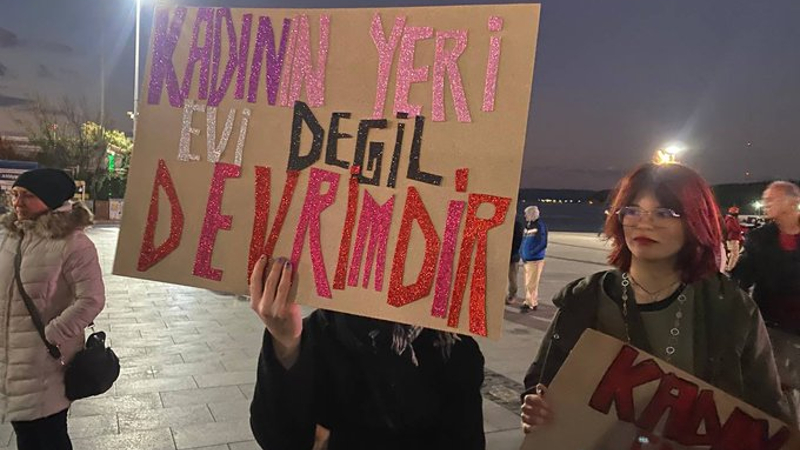 KADININ YERİ
EVİ DEĞİL
DEVRİMDİR
KADIN